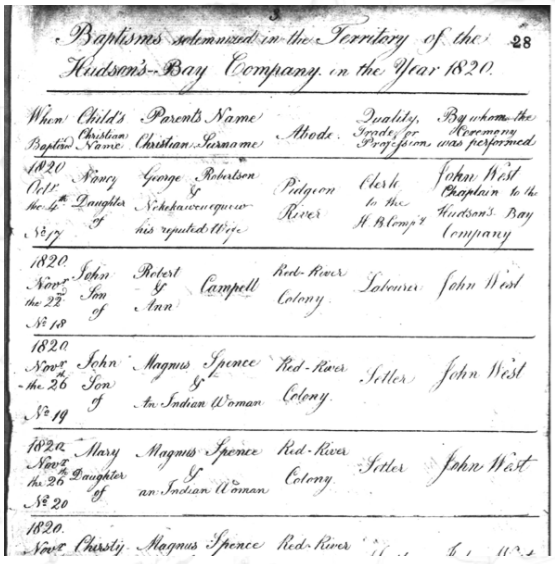 28
Baptisms solemnized in the Territory of the
Hudson's-Bay Company in the Year 1820.
When Baptizd
Child's Christian Name
Parent's Name
Christian Surname
Abode.
Quality, Trade, or Profession
By whom the Ceremony was performed
1820
Octr
the 4th
No 17
Nancy
Daughter
of
George Robertson
&
his reputed Wife
Pidgeon
River
Clerk
to the
H. B. Compy
John West
Chaplain to the
Hudson's Bay
Company
1820.
Novr
the 22d
No 18
John
Son
of
Robert
&
Ann
Campell
Red-River
Colony.
Labourer
John West
1820.
Novr
the 26th
No 19
John
Son
of
Magnus Spence
&
An Indian Woman
Red-River
Colony.
Setler
John West
1820.
Novr
the 26th
No 20
Mary
Daughter
of
Magnus Spence
&
an Indian Woman
Red-River
Colony.
Setler
John West
1820.
Novr
Chirsty
Magnus Spence
Red-River